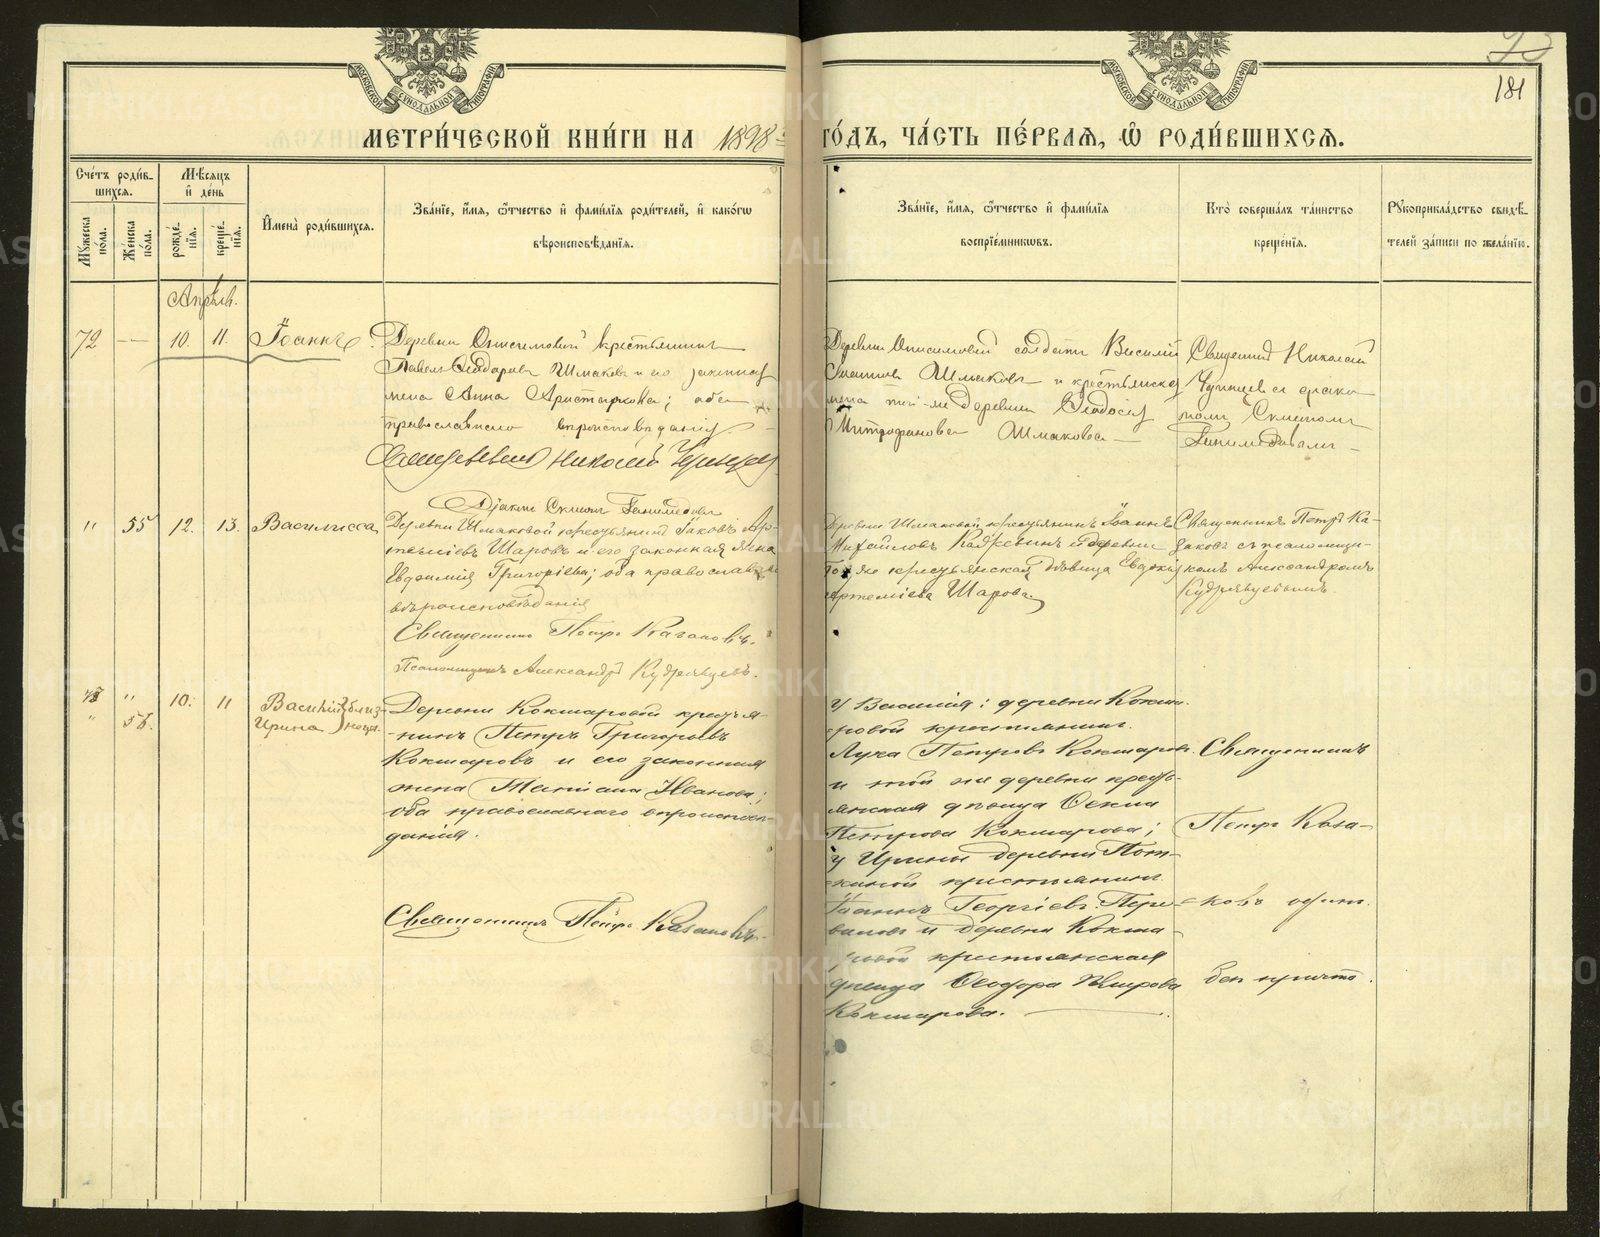 93
181
МОСКОВСКОЙ СѴНОДАЛЬНОЙ ТИПОГРАФІИ
МОСКОВСКОЙ СѴНОДАЛЬНОЙ ТИПОГРАФІИ
МЕТРИ́ЧЕСКОЙ КНИ́ГИ НА 1898 ГО́ДЪ, ЧА́СТЬ ПЕ́РВАЯ, Ѡ РОДИ́ВШИХСЯ.
Сче́тъ роди́в-
шихся.
Мѣсяцъ
и де́нь
Мꙋжеска
по́ла.
Же́нска
по́ла.
рожде́-
нїя.
креще́-
нїя.
Имена̀ роди́вшихся.
Зва́нїе, и́мя, ѻ҆́тчество и фами́лїя роди́телей, и како́гѡ
вѣроисповѣ́данїя.
Зва́нїе, и́мя, ѻ҆́тчество и фами́лїя
воспрїе́мниковъ.
Кто̀ соверша́лъ та́инство
креще́нїя.
Рꙋкоприкла́дство свидѣ́-
телей за́писи по жела́нїю.
Апрѣль.
72 — 10. 11. Іоаннъ
Деревни Онисимовой крестьянинъ
Павелъ Ѳеодоровъ Шмаковъ и его законная
жена Анна Аристархова; оба
православнаго вѣроисповѣданія.
Священникъ Николай
Дьяконъ Симеонъ
Деревни Онисимовой солдатъ Василій
Шмаковъ и крестьянская
жена той-же деревни Ѳеодосія
Митрофанова Шмакова —
Священникъ Николай
" 55 12. 13. Василисса
Деревни Шмаковой крестьянинъ Іаковъ Ар-
теміевъ Шаровъ и его законная жена
Евдокимія Григоріева; оба православнаго
вѣроисповѣданія
Священникъ Петръ Казаковъ.
Псаломщикъ Александръ Кудрявцевъ.
Деревни Шмаковой крестьянинъ Іоаннъ
Михайловъ и деревни
той же крестьянская дѣвица Евдокія
Артеміева Шарова
Священникъ Петръ Ка-
заковъ съ псаломщи-
комъ Александромъ
Кудрявцевымъ.
73 " 10. 11 Василій } близ-
" 56. Ирина } нецы.
Деревни Кокшаровой крестья-
нинъ Петръ Григорьевъ
Кокшаровъ и его законная
жена Татіана Иванова;
оба православнаго вѣроисповѣ-
данія.
Священникъ Петръ Казаковъ.
У Василія: деревни Кокша-
ровой крестьянинъ
Лука Петровъ Кокшаровъ
и той же деревни кресть-
янская дѣвица Ѳекла
Петрова Кокшарова;
у Ирины деревни
крестьянинъ
Іоаннъ Георгіевъ Пере-
валовъ и деревни Кокша-
ровой крестьянская
дѣвица Ѳеодора Петрова
Кокшарова. —
Священникъ
Петръ Каза-
ковъ одинъ
безъ причта.
METRIKI.GASO-URAL.RU